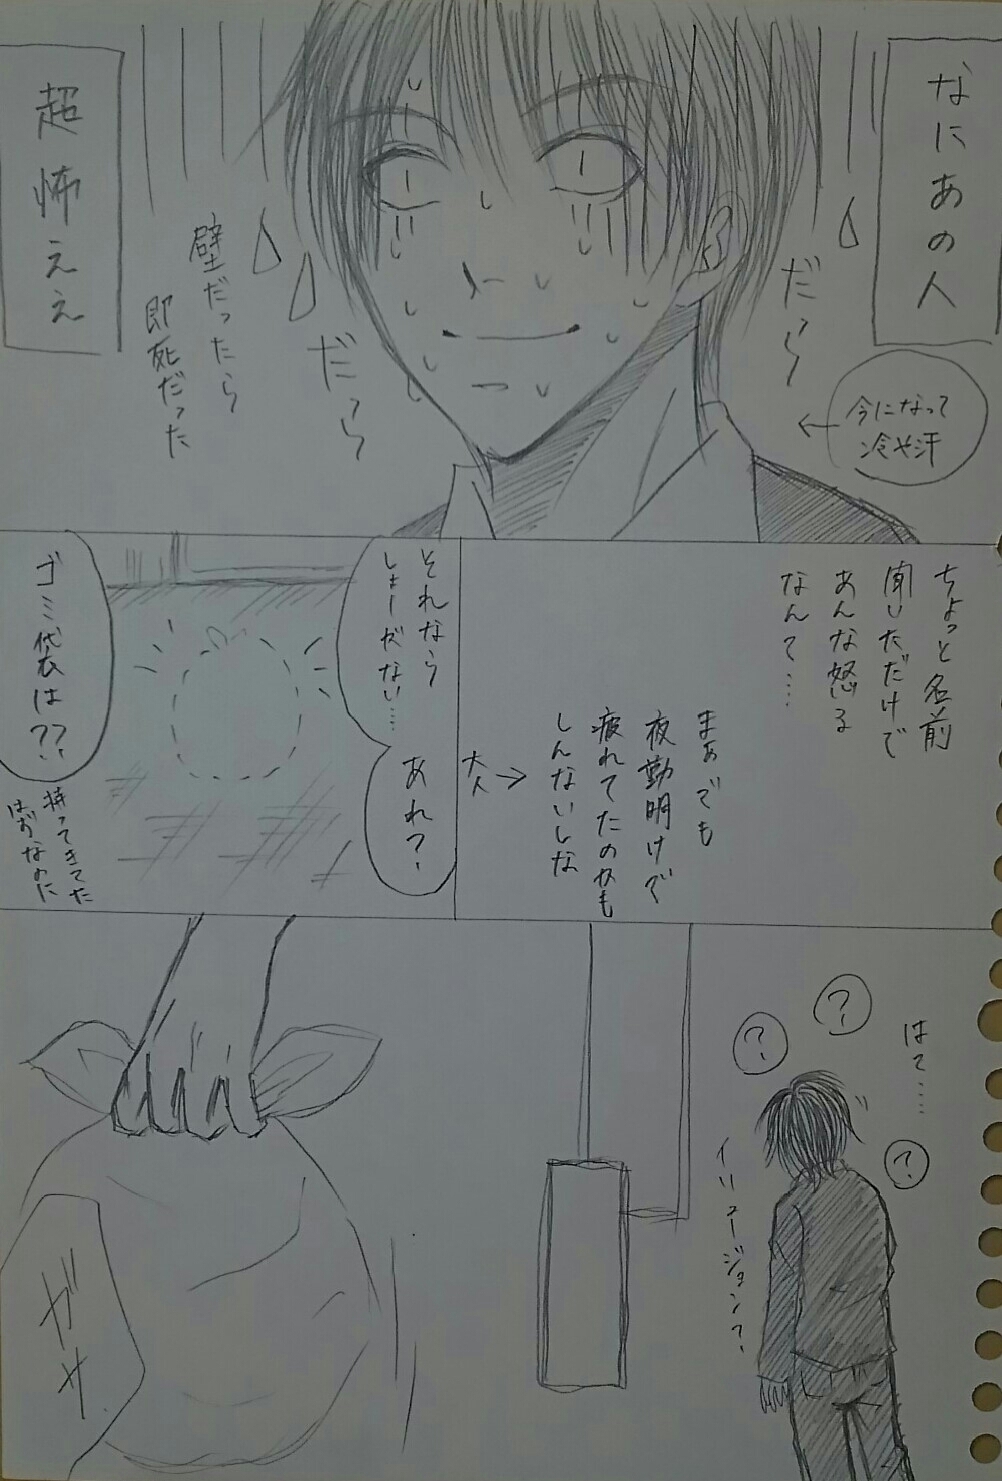 なにあの人
超怖ええ
だらら
今になって
冷や汗
だらら
壁だったら
即死だった
ちょっと名前
聞いただけで
あんな怒る
なんて……
まぁでも
夜勤明けで
疲れてたのかも
しんないしな
大人
それなら
しょーがない…
あれ?
ゴミ袋は??
持ってきてた
はずなのに
はて……
?
?
?
イリュージョン?
ガサ